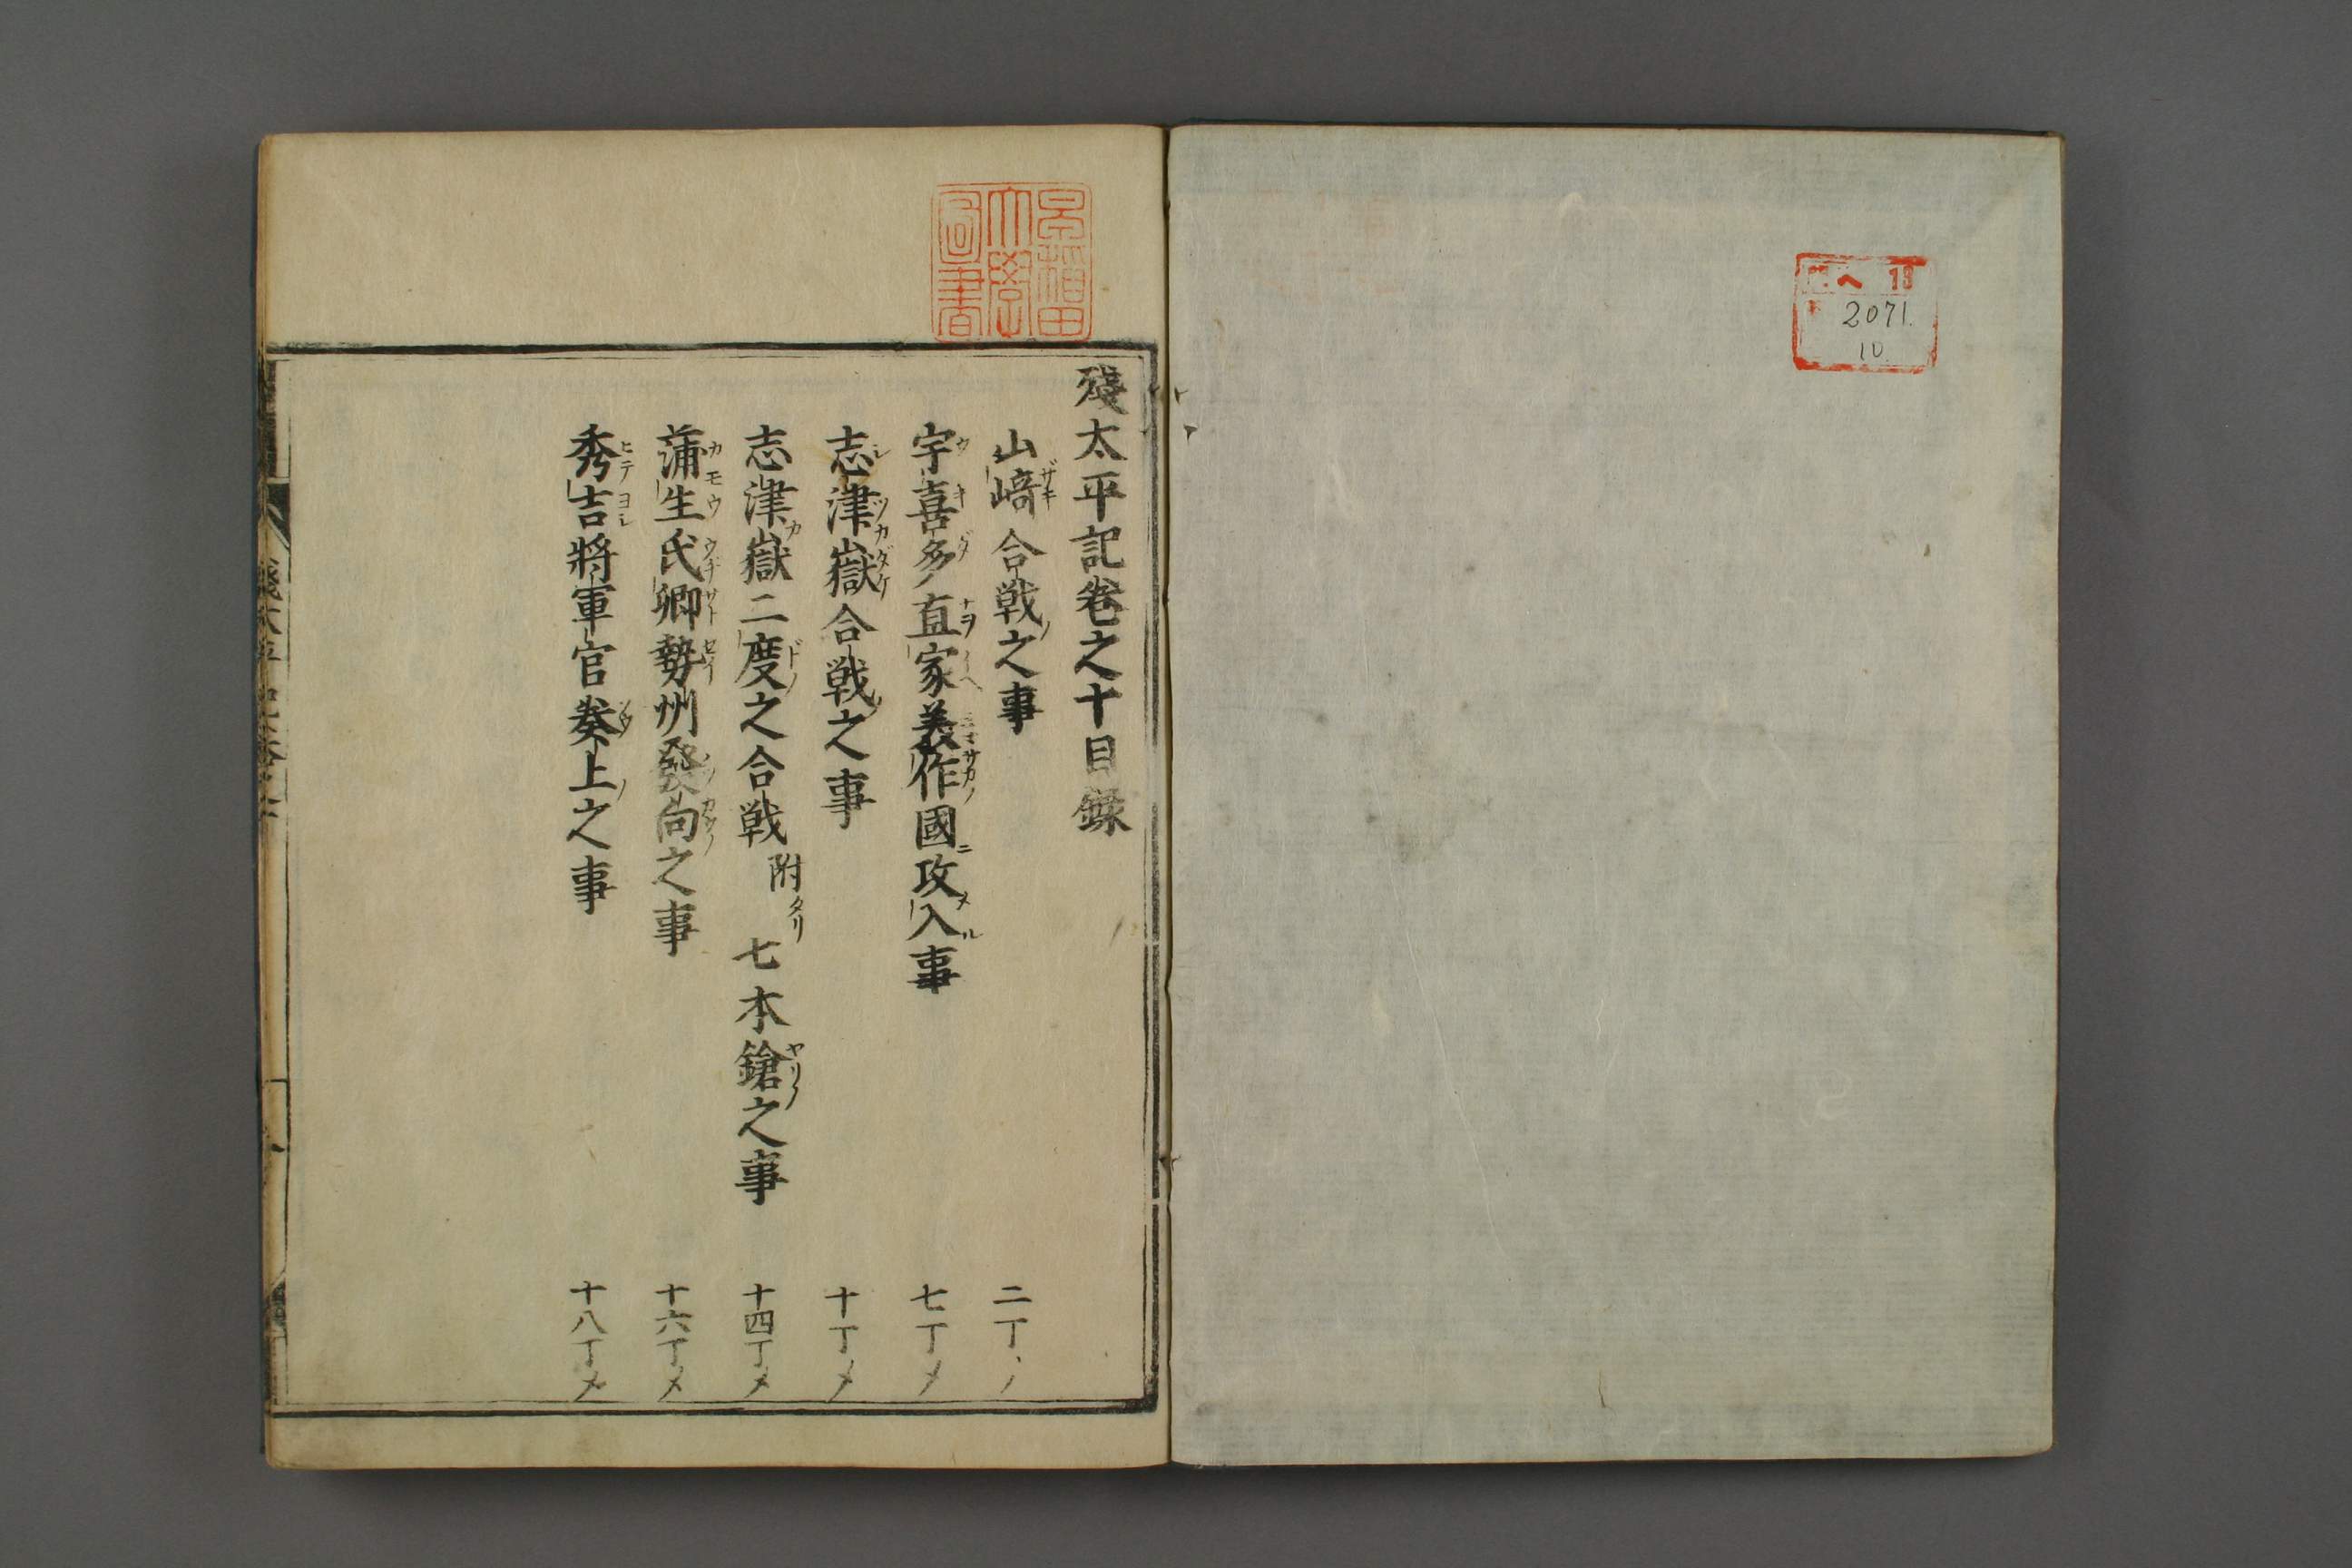 ヘ 13
2071.
10
早稲田
大學
圖書
殘太平記卷之十目録
山﨑合戰之事 二丁
宇喜多直家美作國攻入事 七丁メ
志津嶽合戰之事 十丁メ
志津嶽二度之合戰 附タリ 七本鎗之事 十四丁メ
蒲生氏卿勢州發向之事 十六丁メ
秀吉將軍官奏上之事 十八丁メ